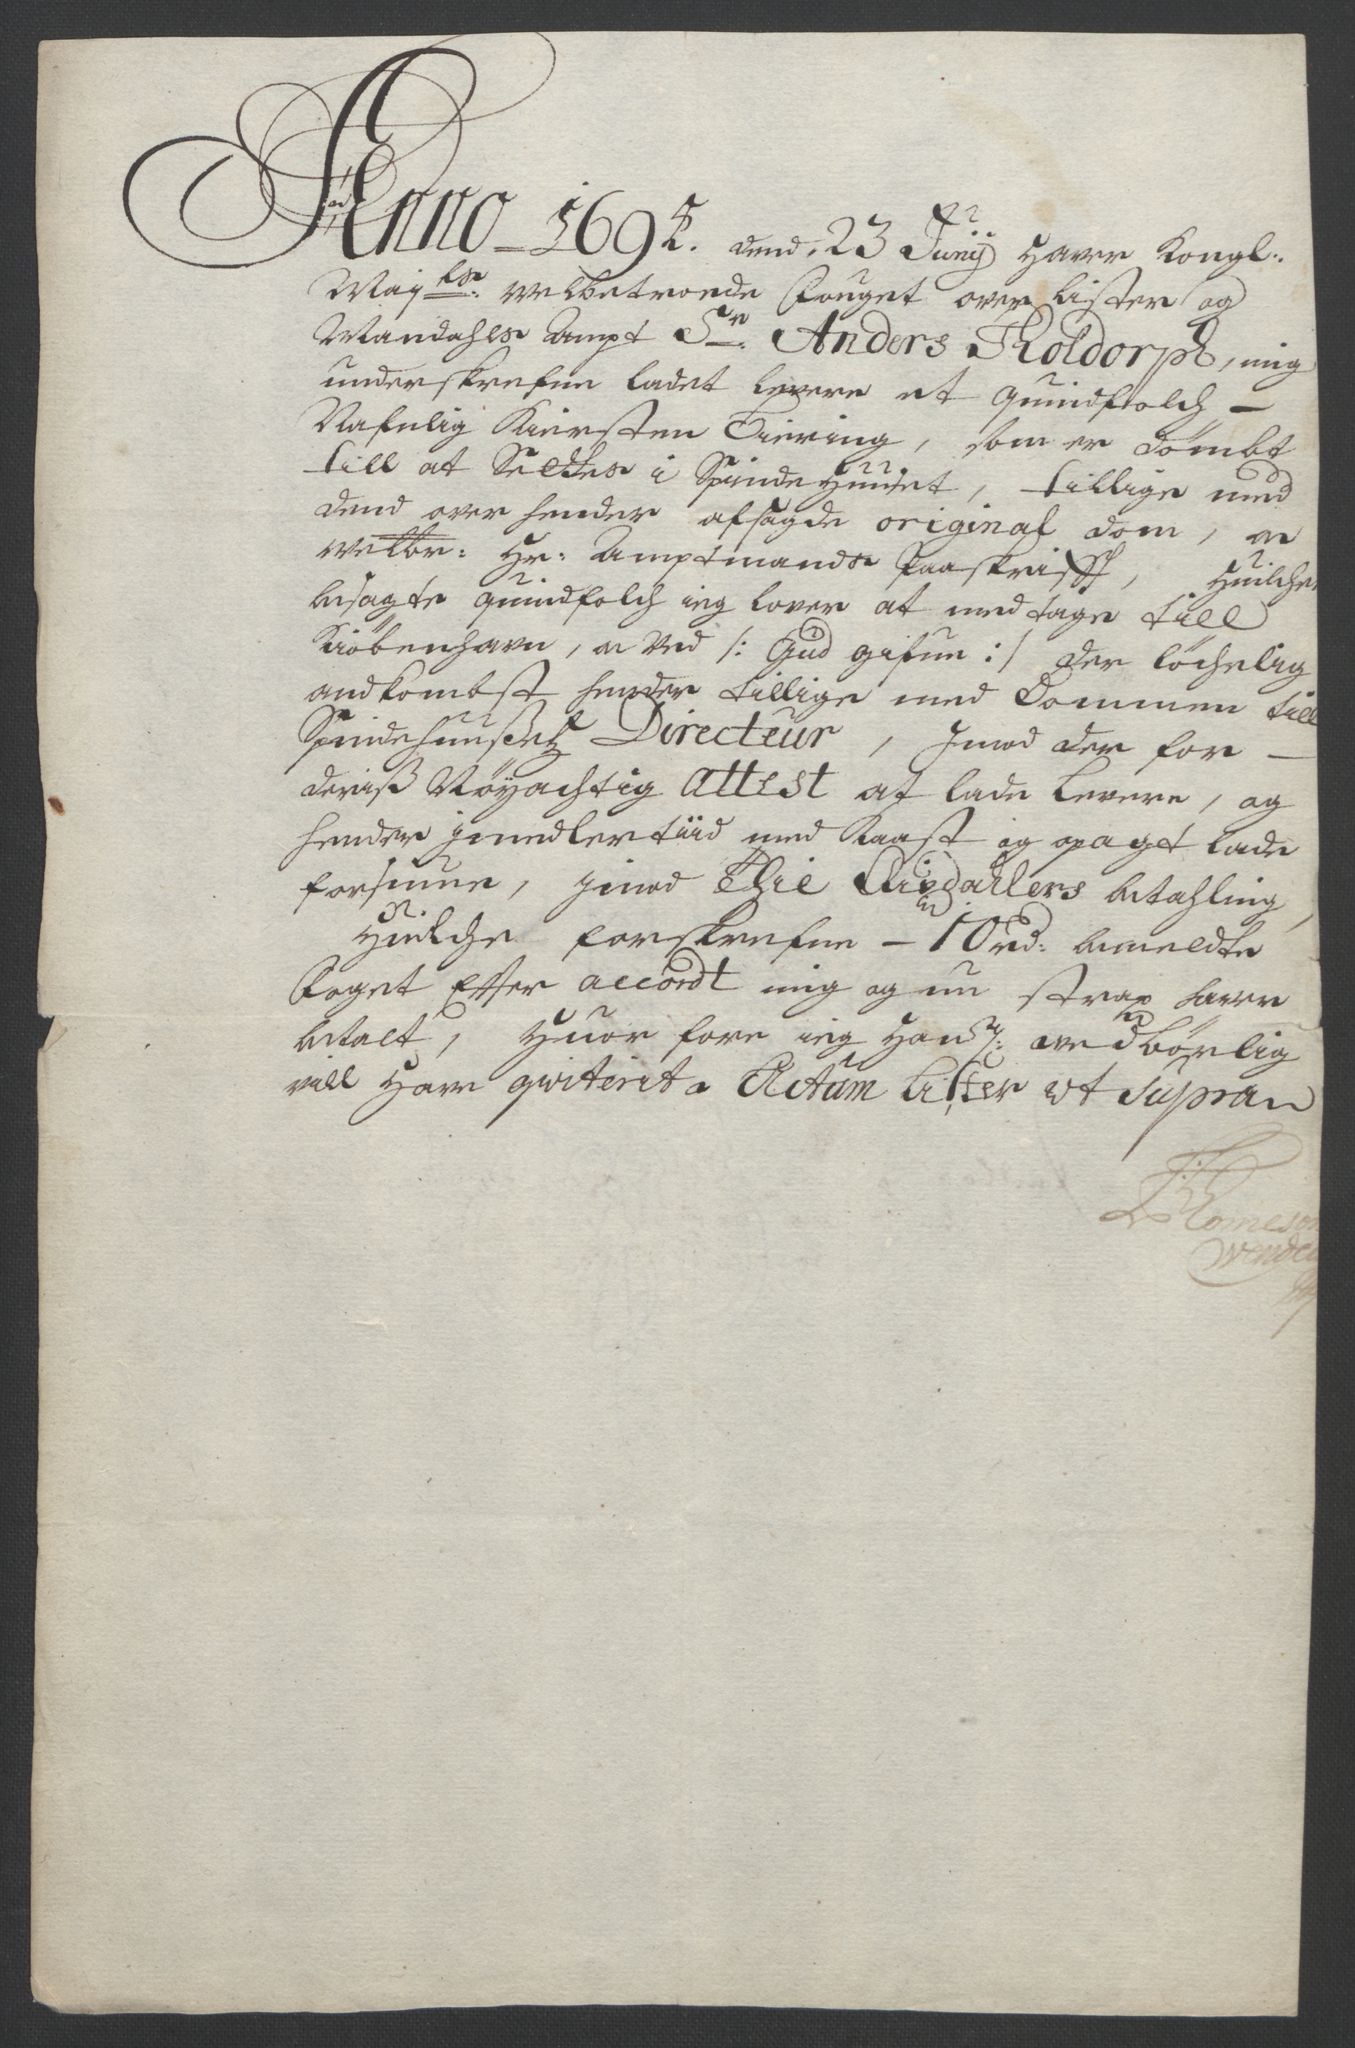 Anno 1695. dend. 23 Junij Haver Kongl.
May:tts: velbetroede Fouget over Lister og
Mandahls Ampt Sr. Anders Tholdorph, mig
underskrefne ladet levere et quindfolch —
Nafnlig Kiersten Tiering, som er dømbt
till at Settes i Spinde Huuset, tillige med
dend over hender afsagde original dom, oc
velbr: Hr: Amptmands Paaskrifft, Huilchet
besagte quindfolch ieg lover at med tage till
Kiöbenhavn, oc ved /: Gud gifue :/ der löchelig
andkombst hender tillige med Dommen till
Spindehuußetz Directeur, Jmod der for —
deriß Nöyachtig attest at lade levere, og
hender jmedlertiid med Kaast og opagt lade
forsiune, jmod Thie Rixdahlers betahling,
Huilche forskrefne — 10 rd: bemeldte
Foget Effter accordt mig og nu strax haver
betalt, Huor fore ieg Hans: vedbörlig
vill Have qviterit. Actum Lister ut Supra
Thomeson